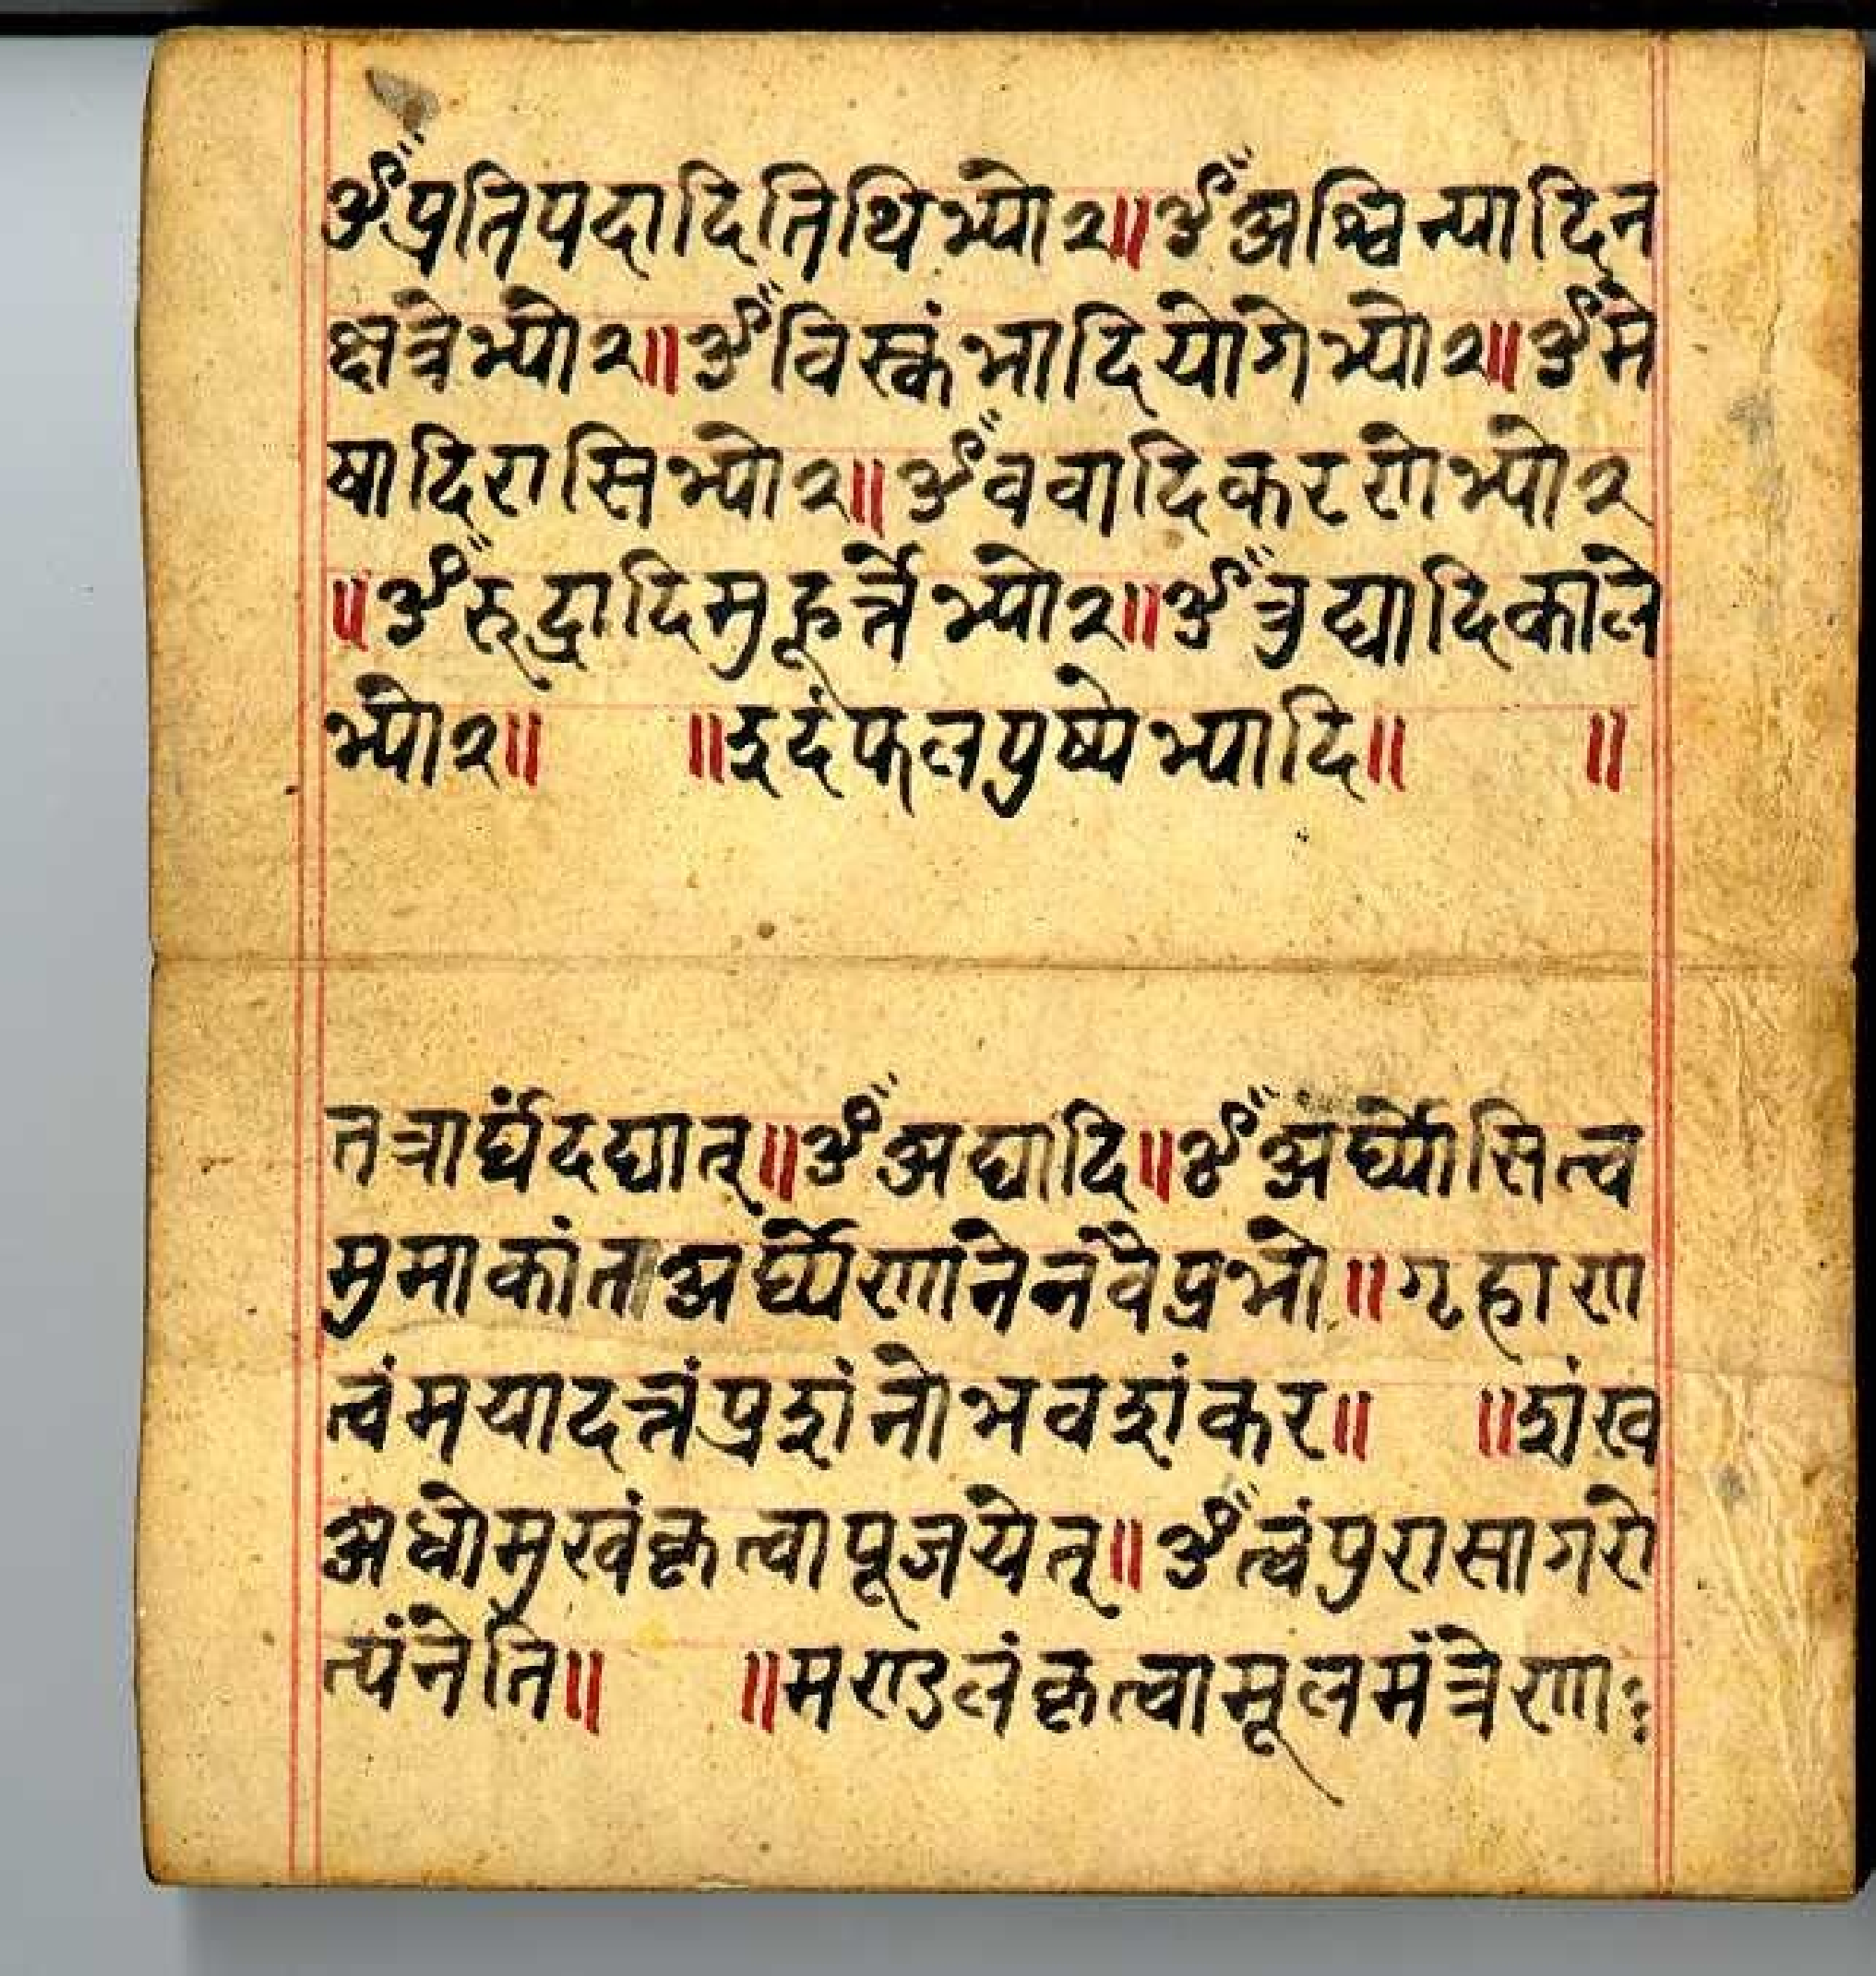 ॐप्रतिपदादितिथिभ्यो२॥ॐअश्विन्यादिन
क्षत्रेभ्यो२॥ॐविस्कंभादियोगेभ्यो२॥ॐमे
षादिरासिभ्यो२॥ॐववादिकरणेभ्यो२
॥ॐरुद्रादिमुहूर्त्तेभ्यो२॥ॐत्रुद्यादिकाले
भ्यो२॥ ॥इदंफलपुष्पेभ्यादि॥ ॥
तत्रार्घंदद्यात्॥ॐअद्यादि॥ॐअर्घ्योसित्व
मुमाकांतअर्घ्येणानेनवैप्रभो॥गृहाण
त्वंमयादत्तंप्रशंनोभवशंकर॥ ॥शंख
अधोमुखंकृत्वापूजयेत्॥ॐत्वंपुरासागरो
त्पंनेति॥ ॥मण्डलंकृत्वामूलमंत्रेणः